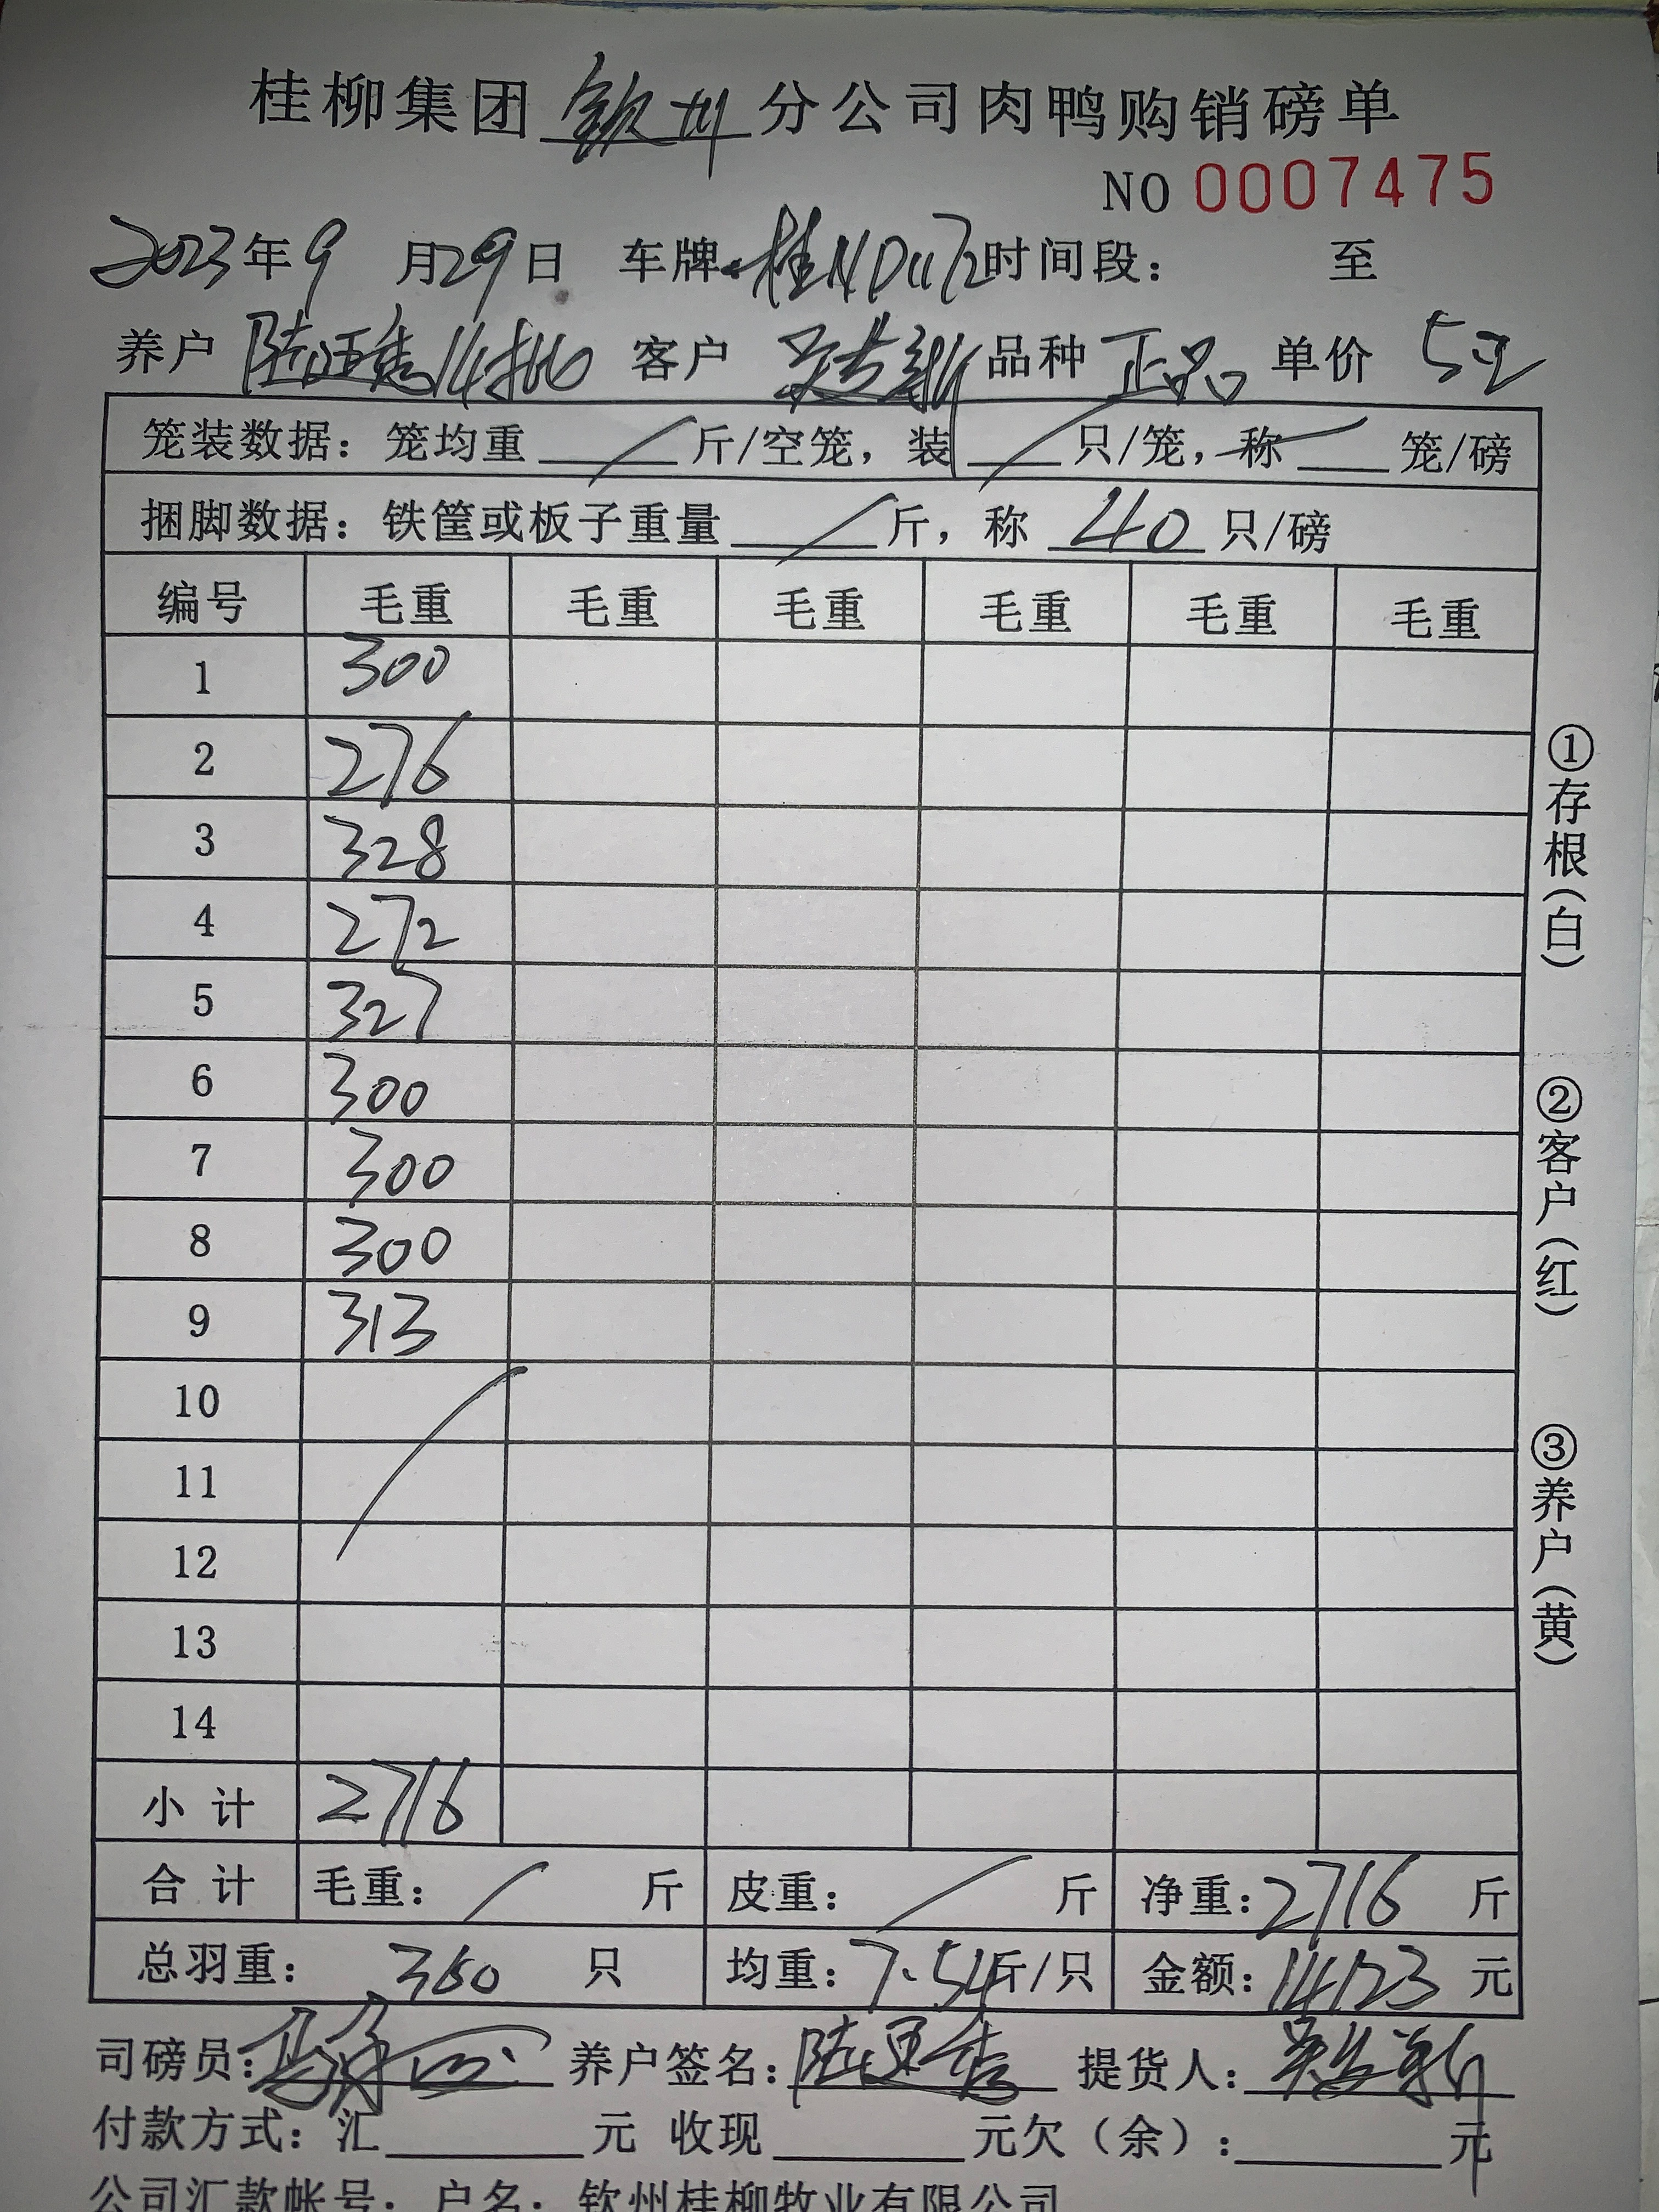 桂柳集团 钦州 分公司肉鸭购销磅单
NO 0007475
2023年9月29日 车牌 桂ND1172 时间段： 至
养户 陆 14批 客户 品种 正品 单价 5.2
笼装数据：笼均重 / 斤/空笼，装 / 只/笼，称 / 笼/磅
捆脚数据：铁筐或板子重量 / 斤，称 40 只/磅
编号 毛重 毛重 毛重 毛重 毛重 毛重
1 300
2 276
3 328
4 272
5 327
6 300
7 300
8 300
9 313
10
11
12
13
14
小计 2716
合计 毛重： / 斤 皮重： / 斤 净重：2716 斤
总羽重： 360 只 均重：7.54斤/只 金额：14123 元
司磅员： 养户签名：陆 提货人：
付款方式：汇 元 收现 元欠（余）： 元
公司汇款帐号：户名：钦州桂柳牧业有限公司
①存根（白）
②客户（红）
③养户（黄）